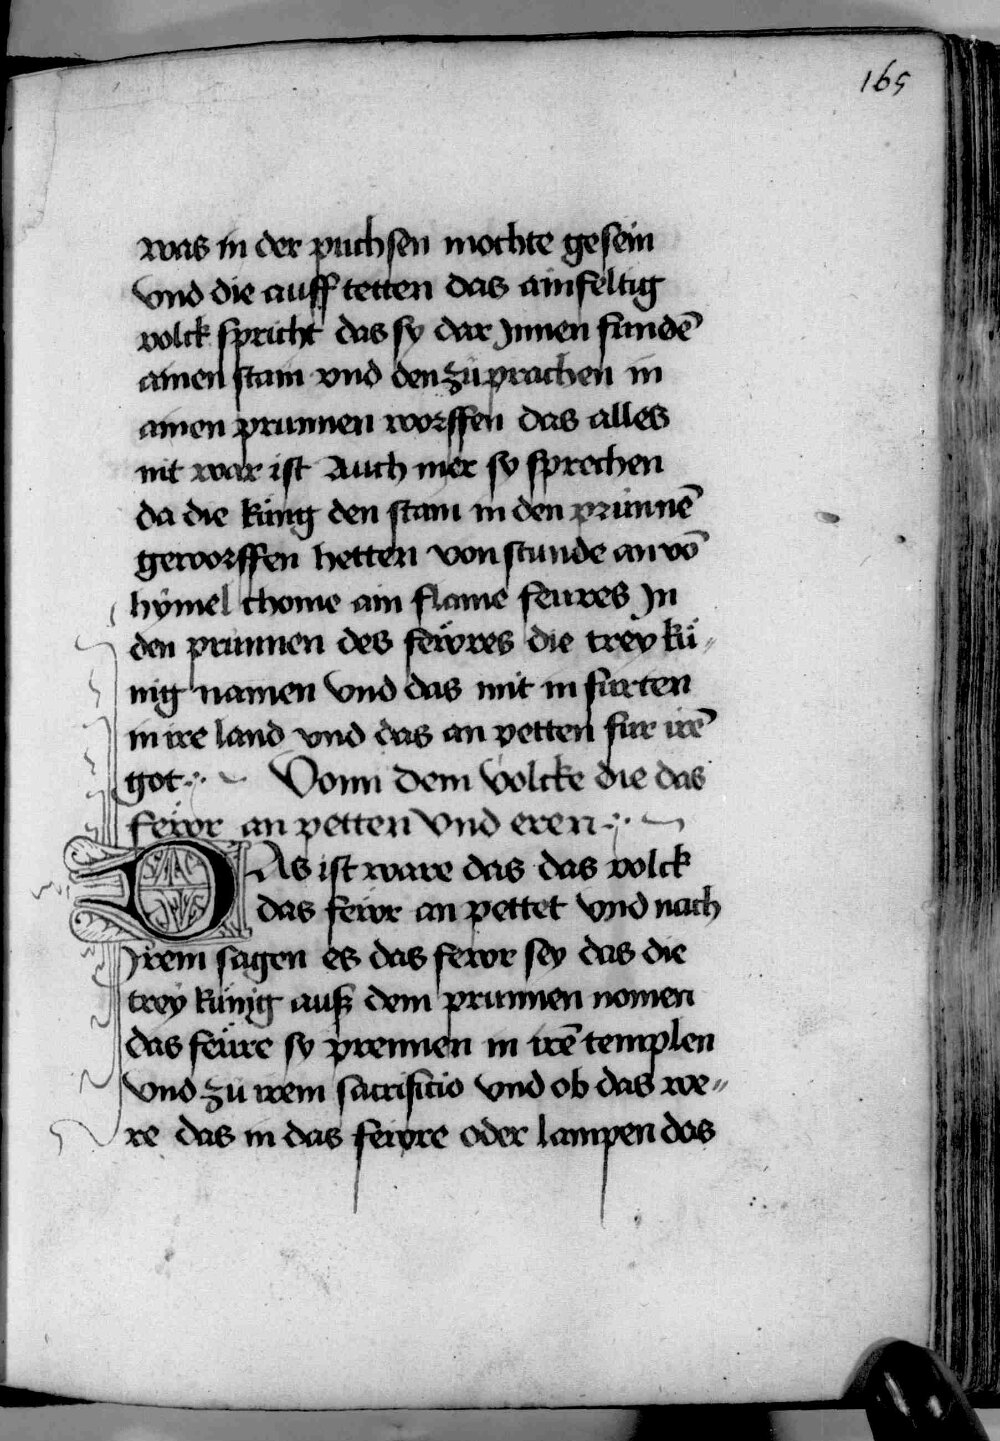 165
was in der puchsen mochte gesein
vnd die auff tetten das ainfeltig
volck spricht das sy dar Jnnen fundē
ainen stain vnd den zu prachen in
ainen prunnen worffen das alles
nit war ist Auch mer sy sprechen
da die kung den stain in den prunnē
geworffen hetten von stunde an vō
hymel chome ain flame feures Jn
den prunnen des fewres die trey kü„
nig namen vnd das mit in furten
in ire land vnd das an petten fur irē
got Vonn dem volcke die das
fewr an petten vnd eren
DAs ist ware das das volck
das fewr an pettet vnd nach
Jrem sagen es das fewr sey das die
trey kunig auß dem prunnen nomen
das feure sy prennen in irē templen
vnd zu irem sacrificio vnd ob das we„
re das in das fewre oder lampen das